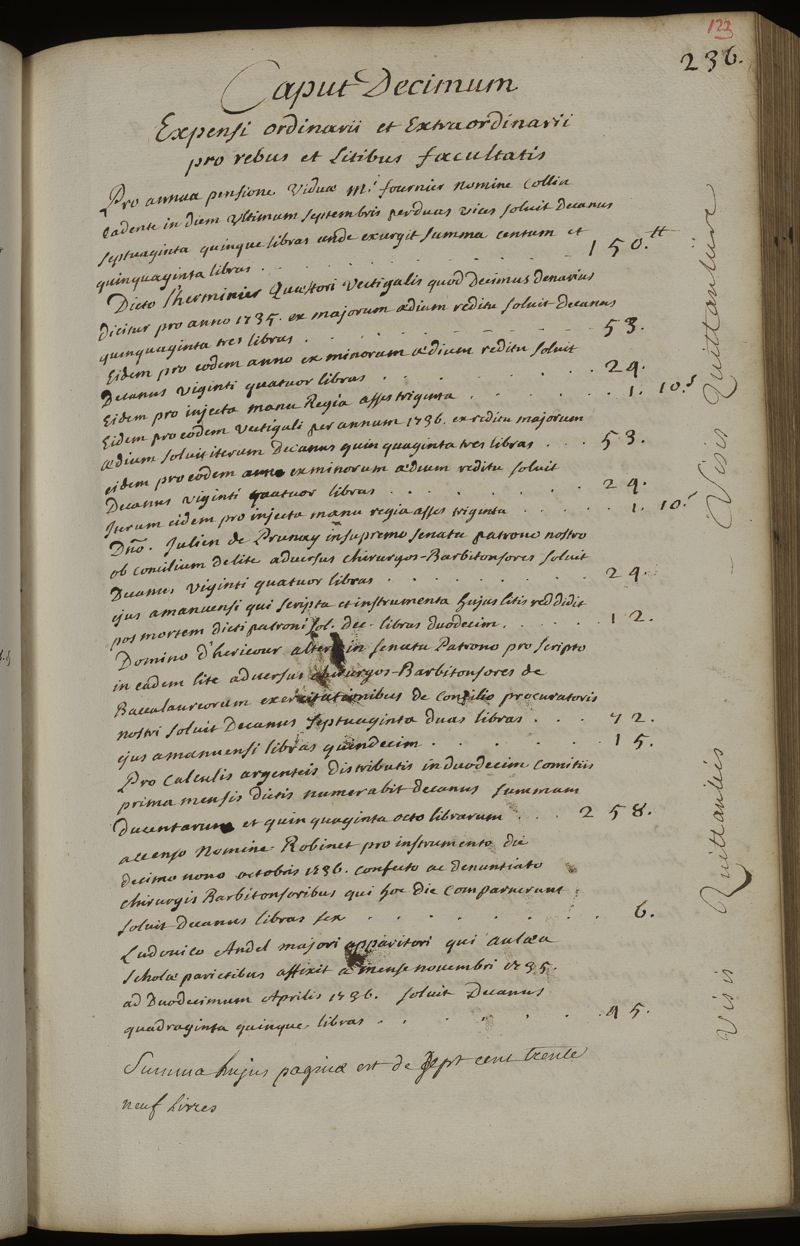 122
236.
Caput Decimum
Expensi ordinarii et Extraordinarii
pro rebus et Litibus facultatis
Pro annua pensione Viduæ Mi. fournier nomine Collin
Cadente in diem Ultimum Septembris per duas vices soluit Decanus
septuaginta quinque libras unde exurgit summa centum et
quinquaginta libras . . . . . . 150.tt
Dicto Lherminier Quæstori Vectigalis quod Decimus denarius
dicitur pro anno 1735. ex majorum ædium reditu soluit Decanus
quinquaginta tres libras . . . . . . 53.
Eidem pro eodem anno ex minorum ædium reditu soluit
Decanus viginti quatuor libras . . . . . . 24.
Eidem pro injecta manu Regia asses triginta . . . . . . 1. 10.s
Eidem pro eodem Vectigali per annum 1736. ex reditu majorum
ædium soluit iterum Decanus quinquaginta tres libras . . . 53.
eidem pro eodem anno ex minorum ædium reditu soluit
Decanus viginti quatuor libras . . . . . . 24.
Iterum eidem pro injecta manu regia asses triginta . . . . . . 1. 10.s
Dño. Julien de Prunay in supremo senatu patrono nostro
ob concilium de lite adversus chirurgos-Barbitonsores soluit
Decanus viginti quatuor libras . . . . . . 24.
ejus amanuensi qui scripta et instrumenta hujus litis reddidit
post mortem dicti patroni sol. dec. libras duodecim . . . . . 12.
Domino d'hericour alteri in senatu Patrono pro scripto
in eadem lite adversus chirurgos-Barbitonsores de
Baccalaureorum exercitationibus de Consilio procuratoris
nostri soluit Decanus septuaginta duas libras . . . 72.
ejus amanuensi libras quindecim . . . . . . 15.
Pro Calculis argenteis distributis in duodecim Comitiis
prima mensis dictis numerabit decanus summam
Ducentarum et quinquaginta octo librarum . . . 258.
accenso Nomine Robinet pro instrumento die
decimo nono octobris 1736. confecto ac denuntiato
chirurgis Barbitonsoribus qui hoc die Comparuerunt
soluit decanus libras sex . . . . . . 6.
Ludovico Andel majori apparitori qui aulæa
scholæ parietibus affixit a mense novembri 1735.
ad Duodecimum Aprilis 1736. soluit Decanus
quadraginta quinque libras . . . . . . 45.
Summa hujus paginæ est de Sept cent trente
neuf Livres
Visis Quittantiis
Visis Quittantiis